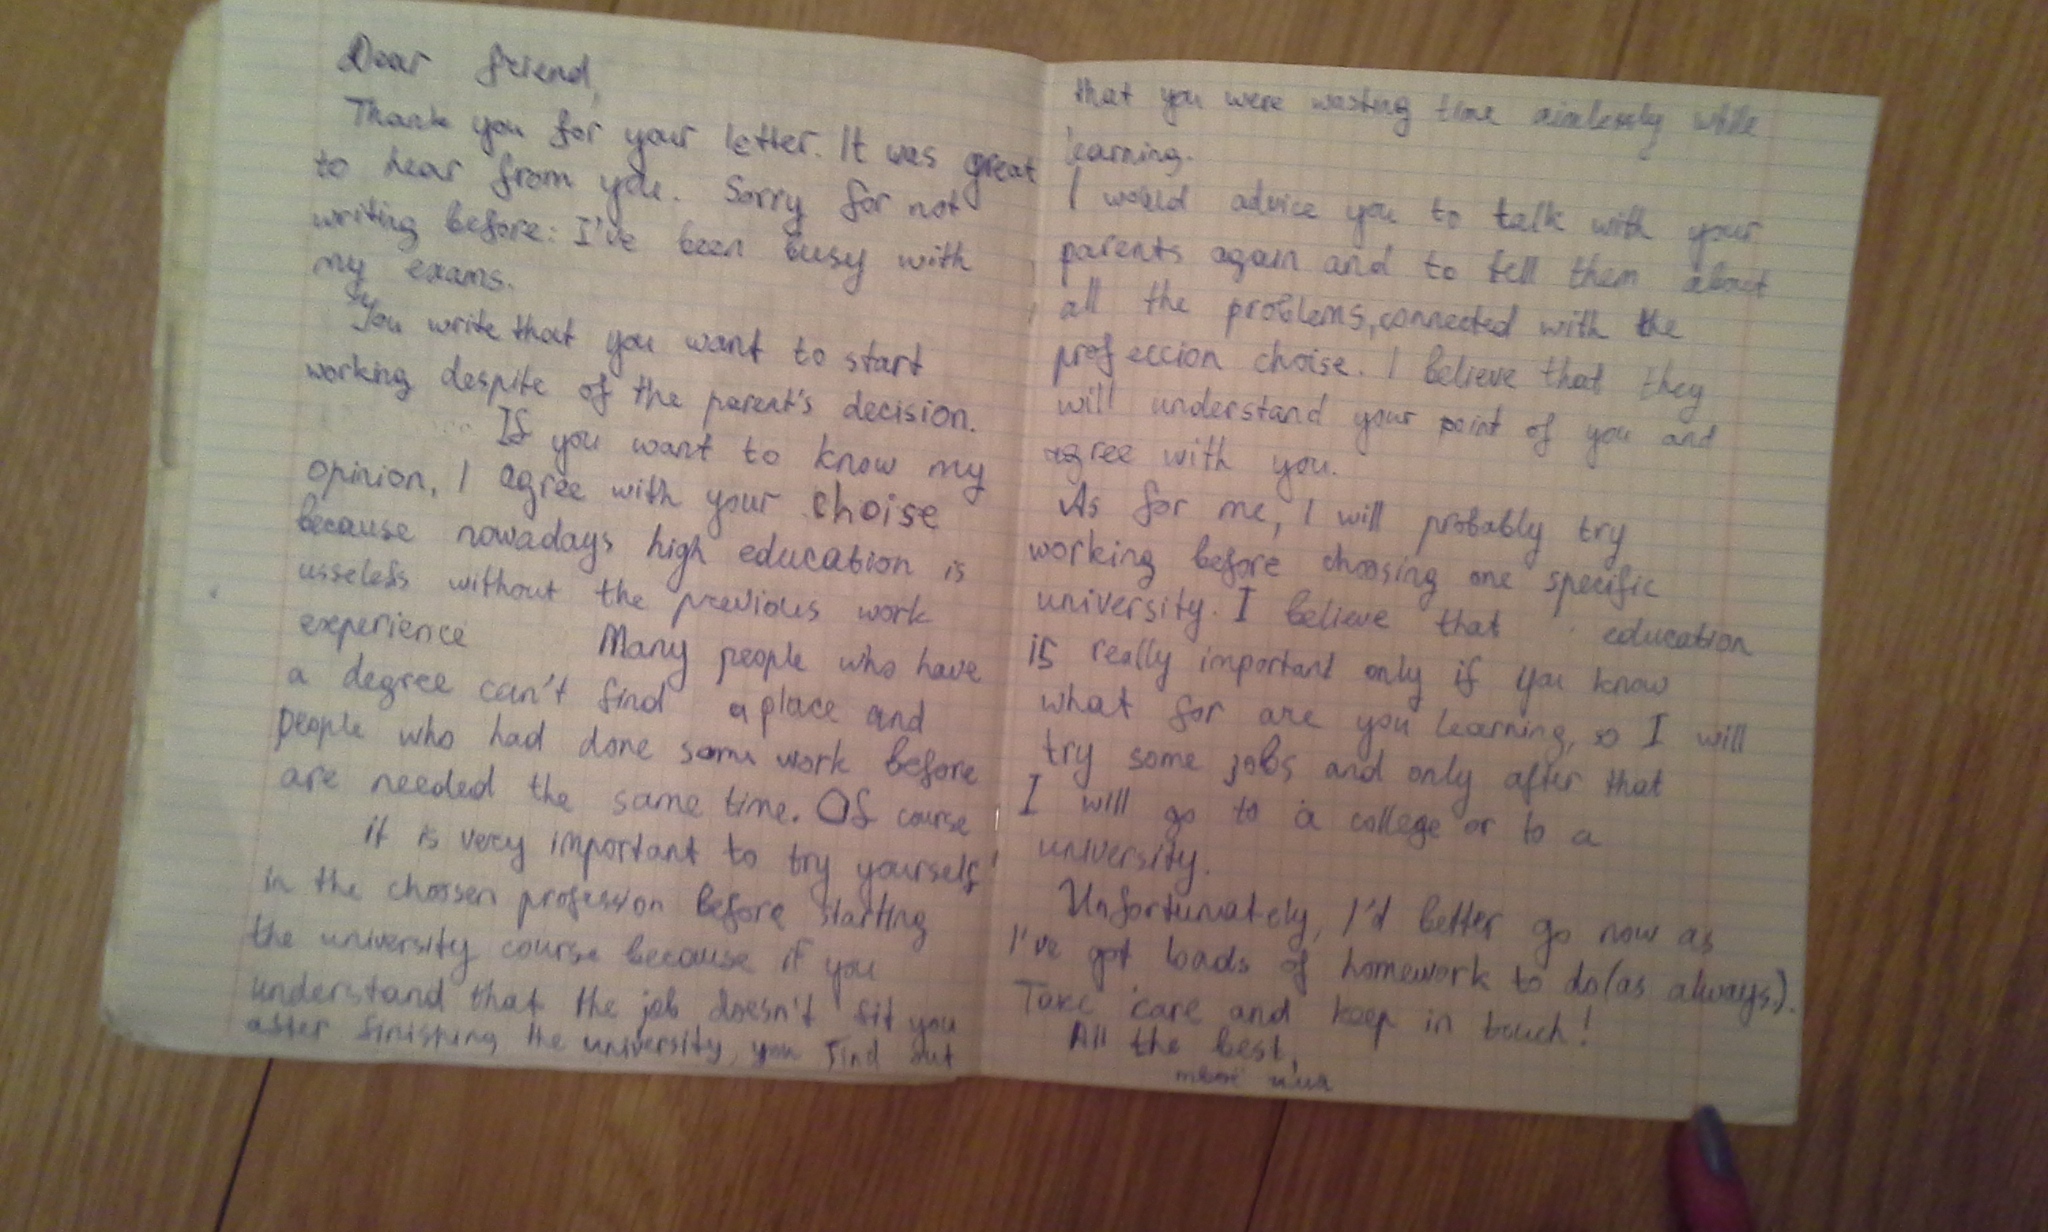 Dear friend,
Thank you for your letter. It was great
to hear from you. Sorry for not
writing before: I've been busy with
my exams.
You write that you want to start
working despite of the parent's decision.
If you want to know my
opinion, I agree with your choise
because nowadays high education is
usseless without the previous work
experience Many people who have
a degree can't find a place and
people who had done some work before
are needed the same time. Of course
it is very important to try yourself
in the choosen profession before starting
the university course because if you
understand that the job doesn't fit you
after finishing the university, you find out
that you were wasting time aimlessly while
learning.
I would advice you to talk with your
parents again and to tell them about
all the problems, connected with the
profeccion choise. I believe that they
will understand your point of you and
agree with you.
As for me, I will probably try
working before choosing one specific
university. I believe that education
is really important only if you know
what for are you learning, so I will
try some jobs and only after that
I will go to a college or to a
university.
Unfortunately, I'd better go now as
I've got loads of homework to do (as always).
Take care and keep in touch!
All the best,
имя